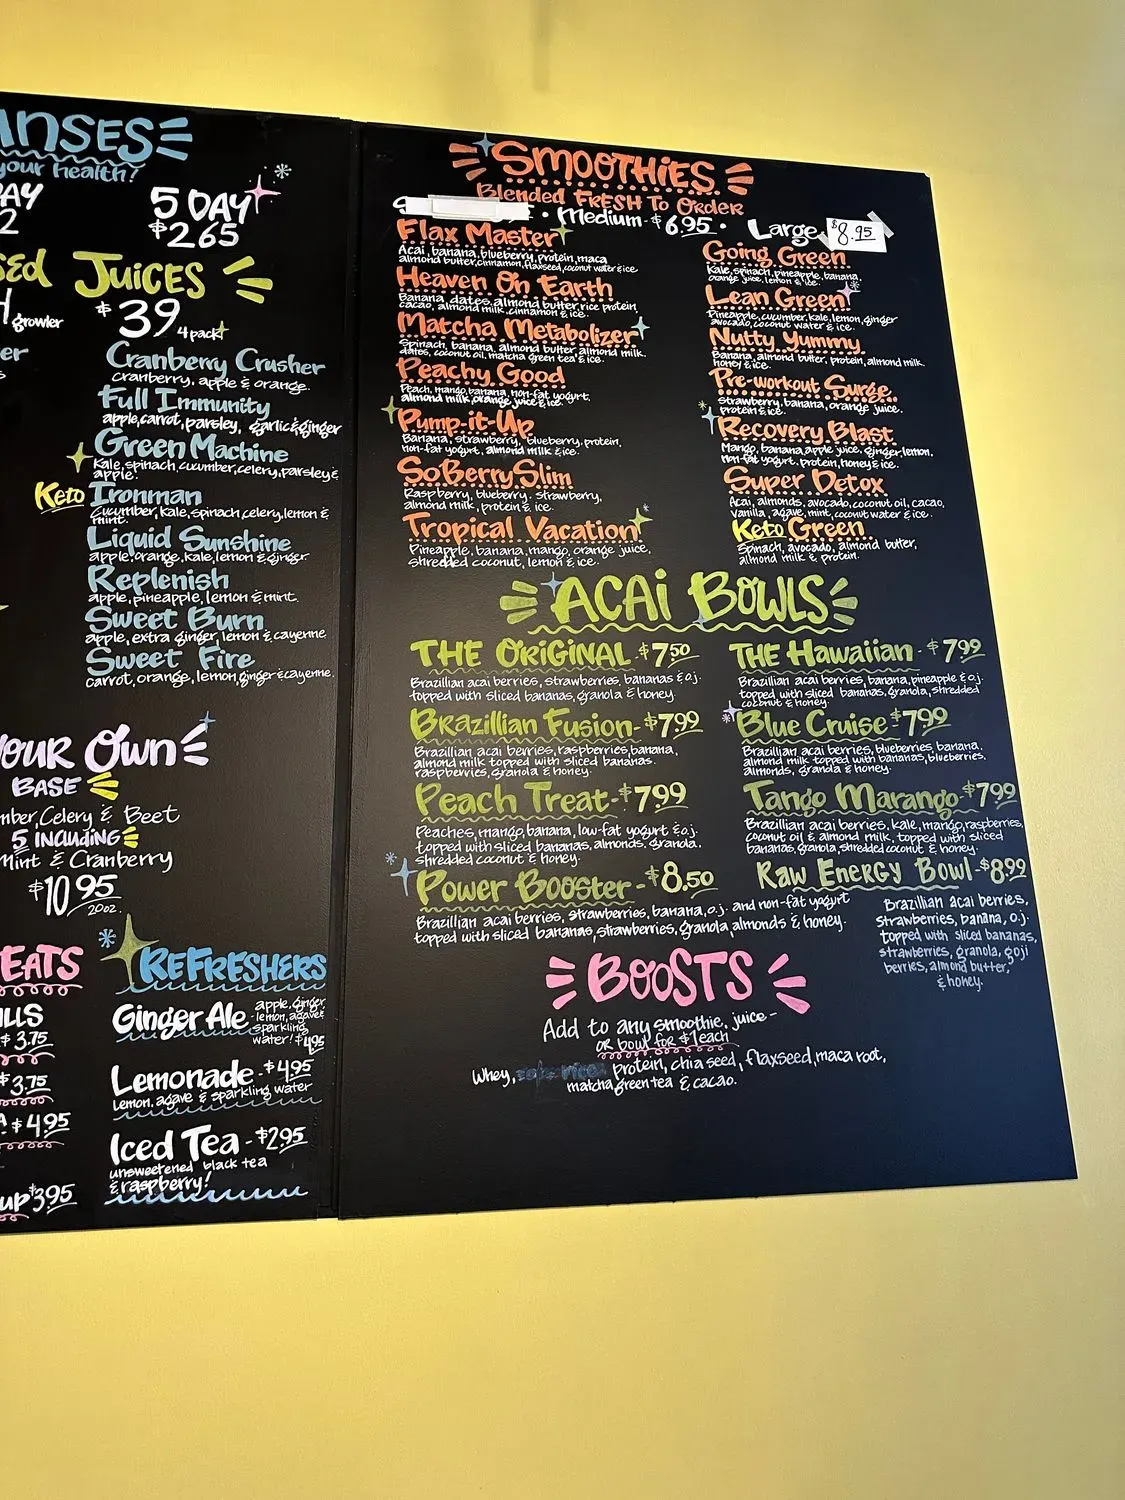 ANSES
your health!
AY
2
5 DAY
$265
sed Juices
growler
$39 4 pack
er
Cranberry Crusher
cranberry, apple & orange.
Full Immunity
apple, carrot, parsley, garlic & ginger
Green Machine
Kale, spinach, cucumber, celery, parsley &
apple.
Keto Ironman
cucumber, kale, spinach, celery, lemon &
mint.
Liquid Sunshine
apple, orange, kale, lemon & ginger.
Replenish
apple, pineapple, lemon & mint.
Sweet Burn
apple, extra ginger, lemon & cayenne
Sweet Fire
carrot, orange, lemon, ginger & cayenne.
our Own
BASE
mber, Celery & Beet
5 including
Mint & Cranberry
$10.95
20oz.
EATS
LLS
$3.75
$3.75
A $4.95
up $3.95
Refreshers
Ginger Ale - apple, ginger,
lemon, agave &
sparkling
water! $4.95
Lemonade - $4.95
Lemon, agave & sparkling water
Iced Tea - $2.95
unsweetened black tea
& raspberry!
Smoothies
Blended Fresh To Order
• Medium - $6.95 • Large $8.95
Flax Master
Acai, banana, blueberry, protein, maca
almond butter, cinnamon, flaxseed, coconut water & ice
Heaven On Earth
Banana, dates, almond butter, rice protein,
cacao, almond milk, cinnamon & ice.
Matcha Metabolizer
Spinach, banana, almond butter, almond milk.
dates, coconut oil, matcha green tea & ice.
Peachy Good
Peach, mango, banana, non-fat yogurt,
almond milk, orange juice & ice.
Pump-it-Up
Banana, strawberry, blueberry, protein,
non-fat yogurt, almond milk & ice.
So Berry Slim
Raspberry, blueberry, strawberry,
almond milk, protein & ice.
Tropical Vacation
Pineapple, banana, mango, orange juice,
shredded coconut, lemon & ice.
Going Green
Kale, spinach, pineapple, banana,
orange juice, lemon & ice.
Lean Green
Pineapple, cucumber, kale, lemon, ginger
avocado, coconut water & ice.
Nutty Yummy
Banana, almond butter, protein, almond milk.
honey & ice.
Pre-workout Surge
Strawberry, banana, orange juice.
protein & ice.
Recovery Blast
Mango, banana, apple juice, ginger, lemon,
non-fat yogurt, protein, honey & ice.
Super Detox
Acai, almonds, avocado, coconut oil, cacao,
vanilla, agave, mint, coconut water & ice.
Keto Green
Spinach, avocado, almond butter,
almond milk & protein.
Acai Bowls
The Original - $7.50
Brazilian acai berries, strawberries, bananas & o.j.
topped with sliced bananas, granola & honey.
Brazillian Fusion - $7.99
Brazillian acai berries, raspberries, banana,
almond milk topped with sliced bananas.
raspberries, granola & honey.
Peach Treat - $7.99
Peaches, mango, banana, low-fat yogurt & o.j.
topped with sliced bananas, almonds, granola,
shredded coconut & honey.
Power Booster - $8.50
Brazillian acai berries, strawberries, banana, o.j. and non-fat yogurt
topped with sliced bananas, strawberries, granola, almonds & honey.
The Hawaiian - $7.99
Brazilian acai berries, banana, pineapple & o.j.
topped with sliced bananas, granola, shredded
coconut & honey.
Blue Cruise $7.99
Brazillian acai berries, blueberries, banana.
almond milk topped with bananas, blueberries.
almonds, granola & honey.
Tango Marango - $7.99
Brazillian acai berries, kale, mango, raspberries,
coconut oil & almond milk, topped with sliced
bananas, granola, shredded coconut & honey.
Raw Energy Bowl - $8.99
Brazillian acai berries,
strawberries, banana, o.j.
topped with sliced bananas,
strawberries, granola, goji
berries, almond butter,
& honey.
Boosts
Add to any smoothie, juice -
or bowl for $1 each
Whey, protein, chia seed, flaxseed, maca root,
matcha green tea & cacao.